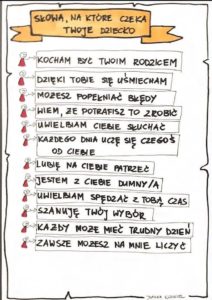 SŁOWA, NA KTÓRE CZEKA
TWOJE DZIECKO
KOCHAM BYĆ TWOIM RODZICEM
DZIĘKI TOBIE SIĘ UŚMIECHAM
MOŻESZ POPEŁNIAĆ BŁĘDY
WIEM, ŻE POTRAFISZ TO ZROBIĆ
UWIELBIAM CIEBIE SŁUCHAĆ
KAŻDEGO DNIA UCZĘ SIĘ CZEGOŚ
OD CIEBIE
LUBIĘ NA CIEBIE PATRZEĆ
JESTEM Z CIEBIE DUMNY/A
UWIELBIAM SPĘDZAĆ Z TOBĄ CZAS
SZANUJĘ TWÓJ WYBÓR
KAŻDY MOŻE MIEĆ TRUDNY DZIEŃ
ZAWSZE MOŻESZ NA MNIE LICZYĆ